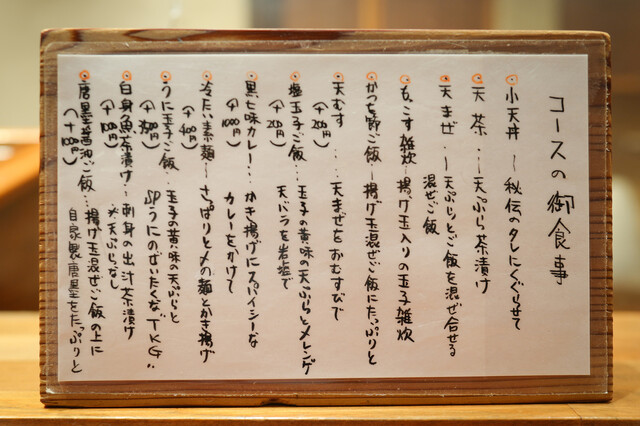 コースの御食事
小天丼 〜 秘伝のタレにくぐらせて
天茶 ・〜天ぷら茶漬け
天まぜ ・〜天ぷらとご飯を混ぜ合せる
混ぜご飯
もっこす雑炊〜揚げ玉入りの玉子雑炊
かつを節ご飯〜揚げ玉混ぜご飯にたっぷりと
天むす ・・・天まぜをおむすびで
(+200円)
塩玉子ご飯…玉子の黄味の天ぷらとメレンゲ
(+200円) 天バラを岩塩で
黒七味カレー…かき揚げにスパイシーな
(+1000円) カレーをかけて
冷たい素麺〜さっぱりと〆の麺とかき揚げ
(+400円)
うに玉子ご飯‥玉子の黄味の天ぷらと
SPうにのぜいたくな“TKG”
白身魚茶漬け…刺身の出汁茶漬け
※天ぷらなし
唐墨醤油ご飯…揚げ玉混ぜご飯の上に
自家製唐墨をたっぷりと